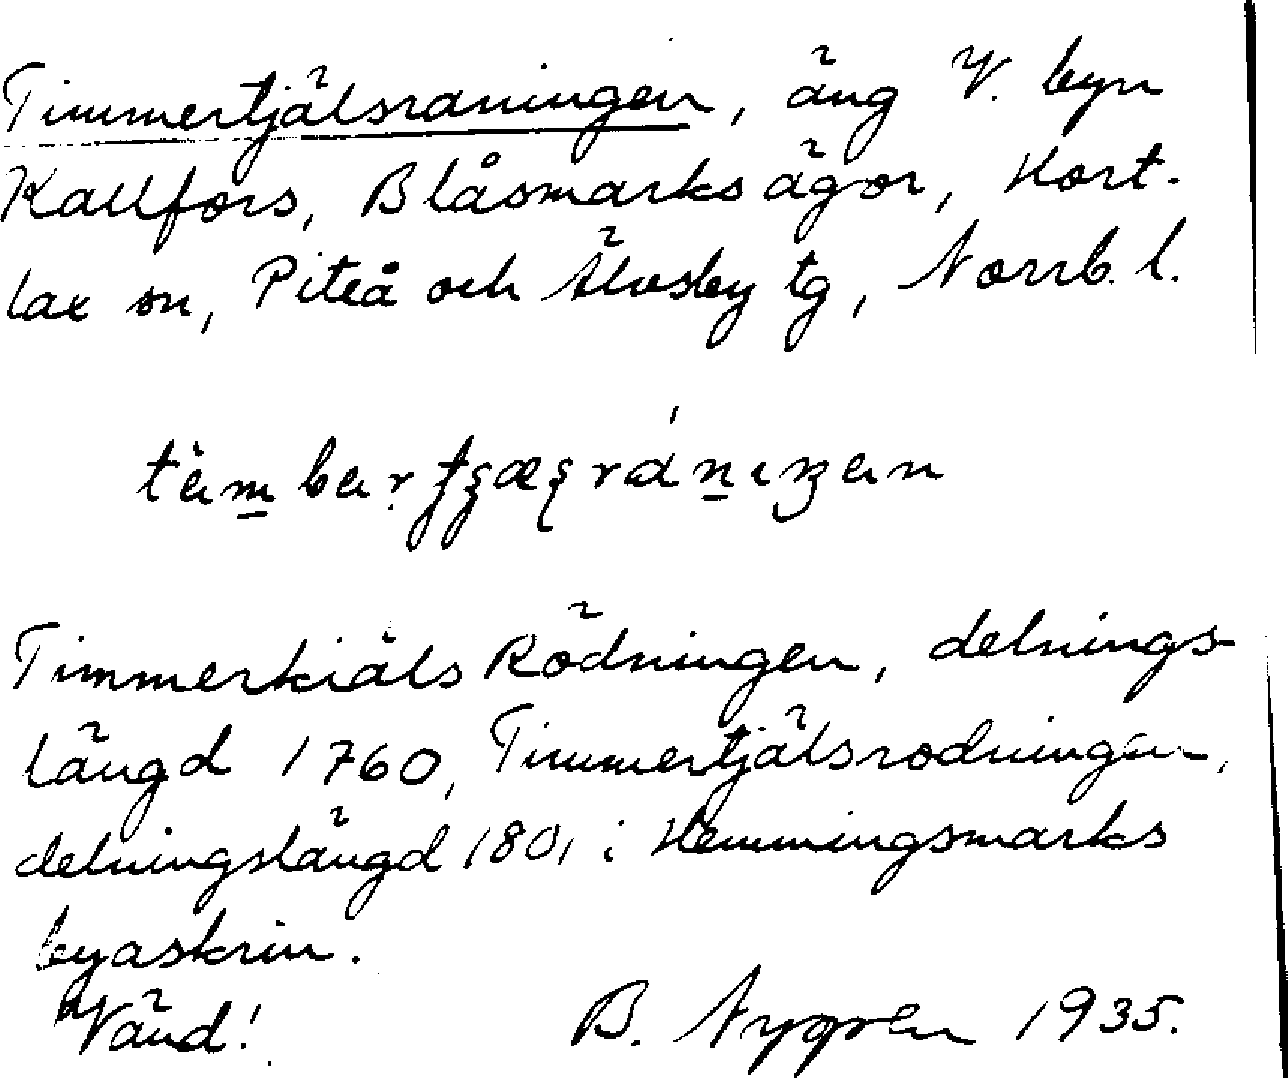 Timmertjälsraningen, äng V. byn
Kallfors, Blåsmarks ägor, Hort-
lax sn, Piteå och Älvsby tg, Norrb. l.
Timmerkiäls Rödningen, delnings-
längd 1760, Timmertjälsrödningen,
delningslängd 1801 i Hemmingsmarks
byaskrin.
Vänd! B. Nygren 1935.